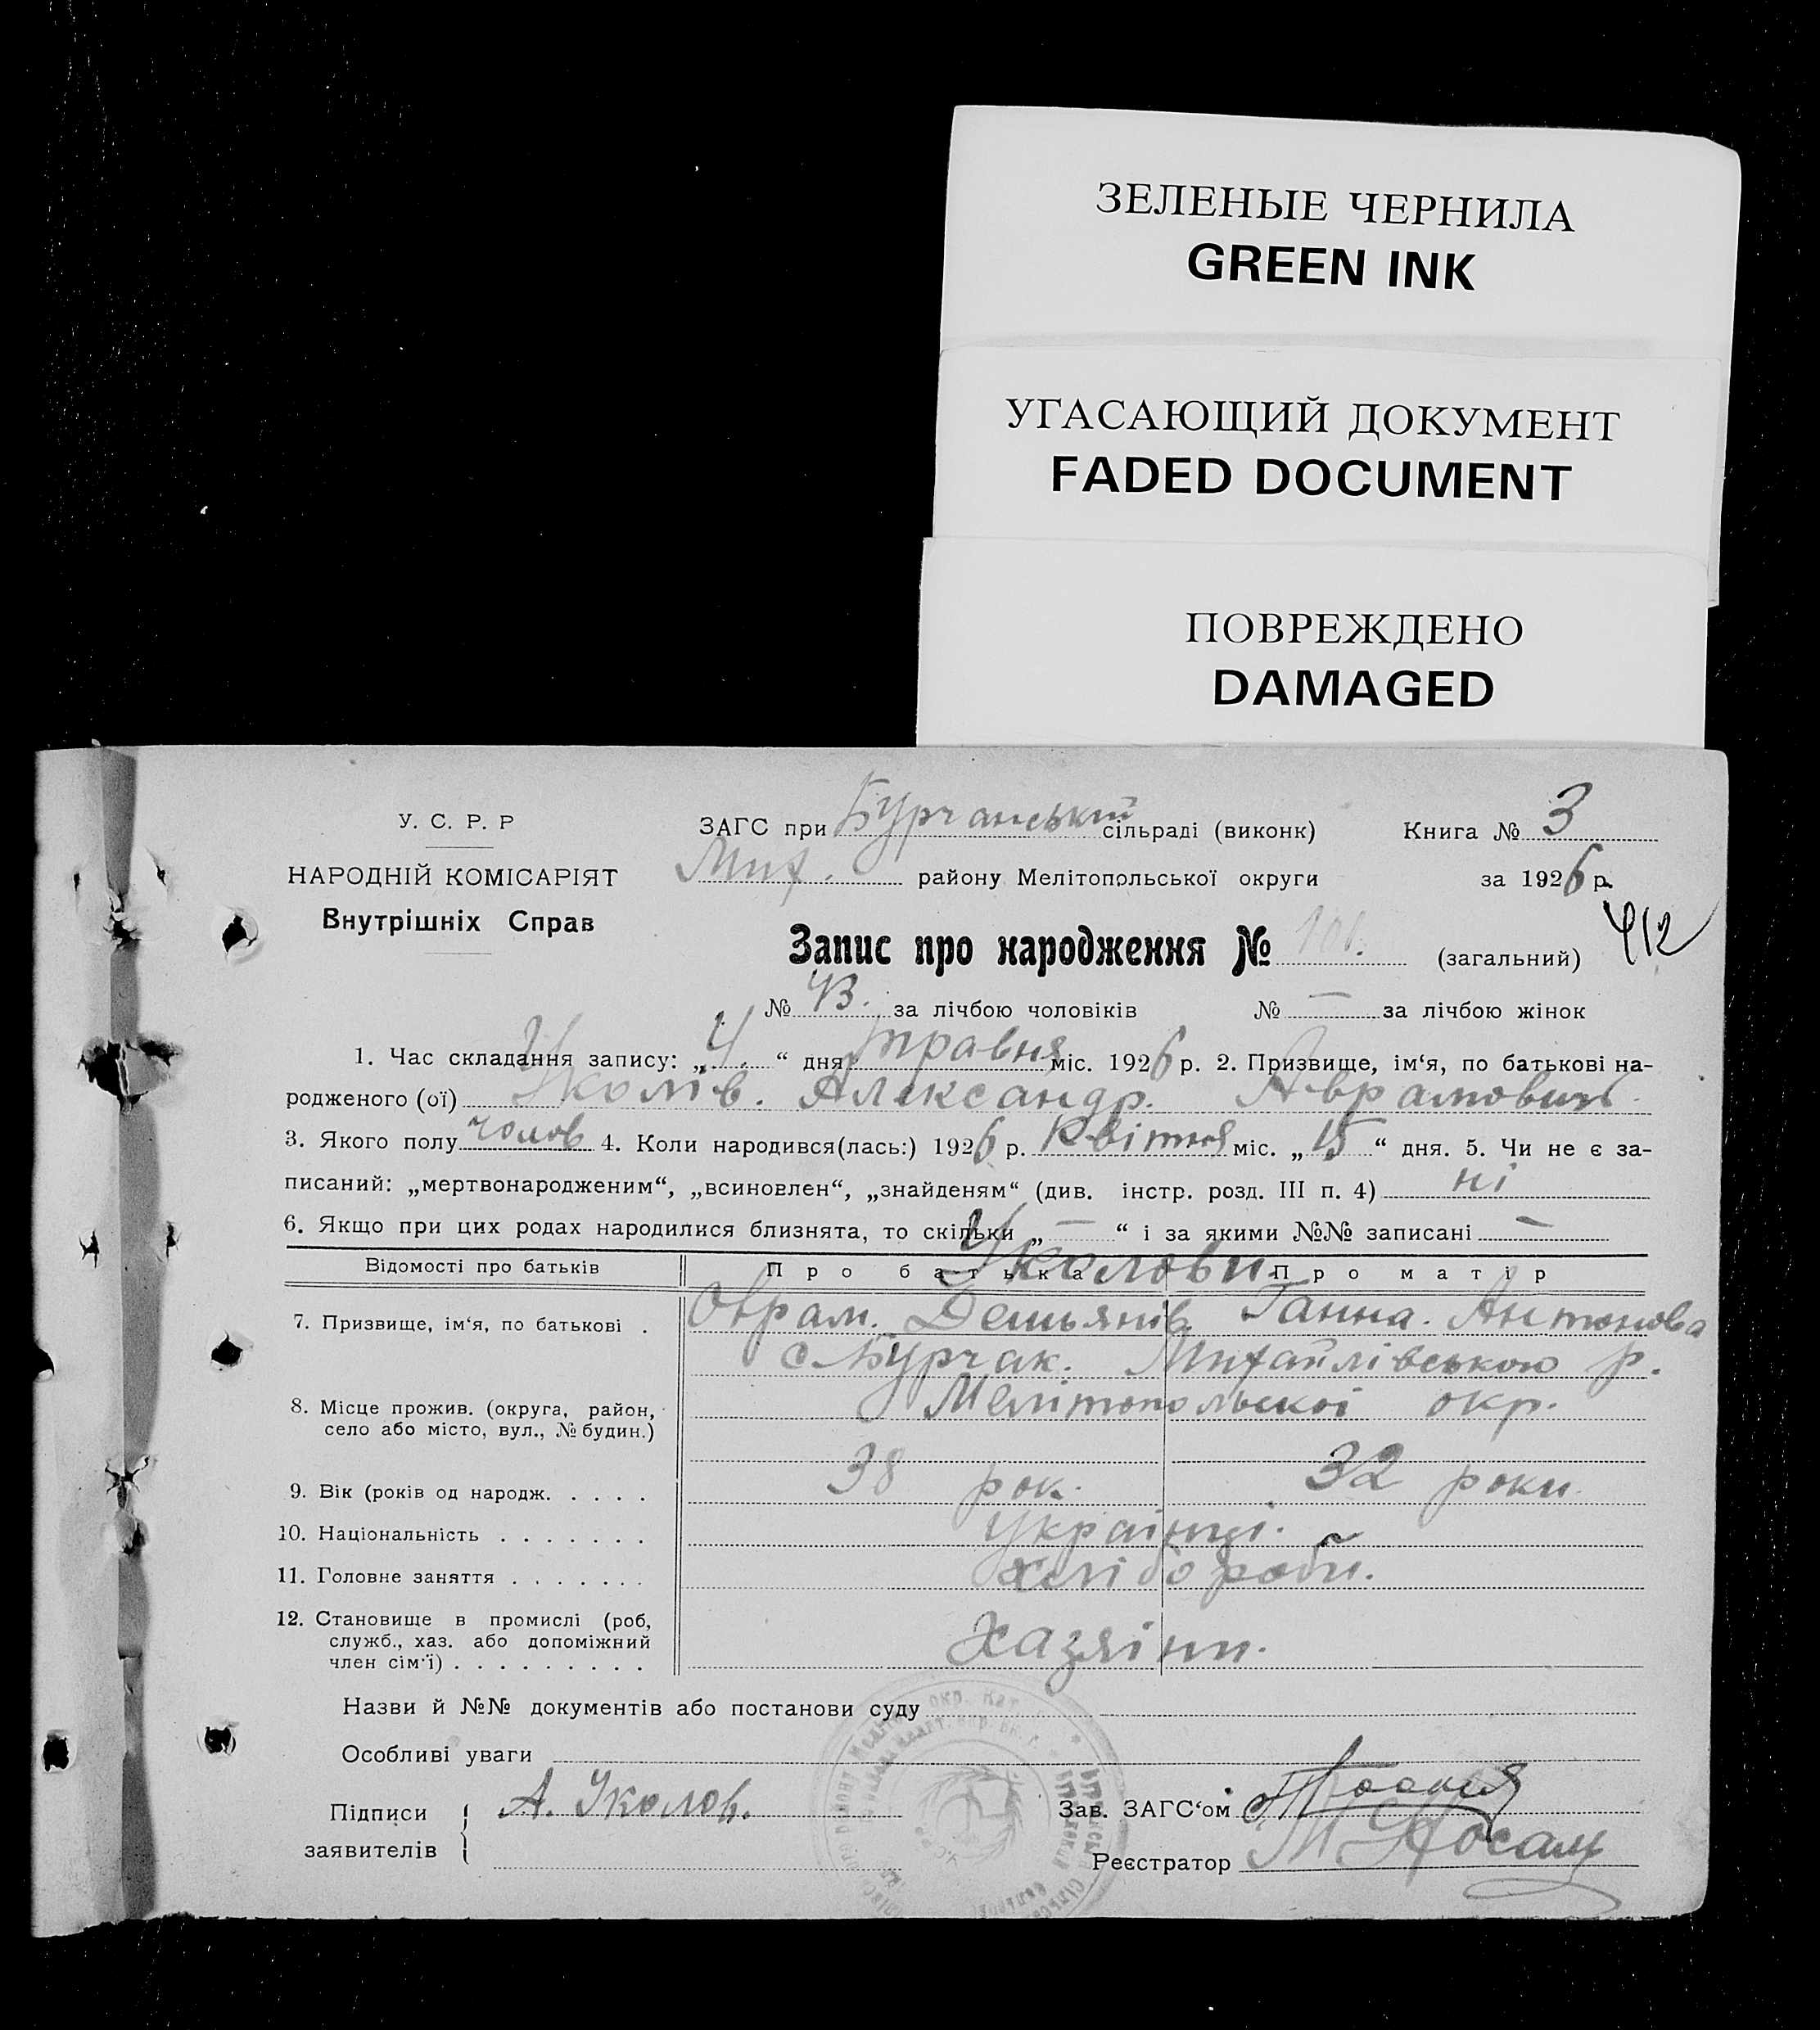 ЗЕЛЕНЫЕ ЧЕРНИЛА
GREEN INK
УГАСАЮЩИЙ ДОКУМЕНТ
FADED DOCUMENT
ПОВРЕЖДЕНО
DAMAGED
У. С. Р. Р
НАРОДНІЙ КОМІСАРІЯТ
Внутрішніх Справ
ЗАГС при Бурчанській сільраді (виконк) Книга № 3
Мих. району Мелітопольської округи за 1926 р.
412
Запис про народження № 101. (загальний)
№ 43. за лічбою чоловіків № — за лічбою жінок
1. Час складання запису: „4.“ дня травня міс. 1926 р. 2. Призвище, ім‘я, по батькові на-
родженого (ої) Уколів. Александр. Аврамович.
3. Якого полу чолов 4. Коли народився(лась:) 1926 р. Квітня міс. „15“ дня. 5. Чи не є за-
писаний: „мертвонародженим“, „всиновлен“, „знайденям“ (див. інстр. розд. III п. 4) ні
6. Якщо при цих родах народилися близнята, то скільки „—“ і за якими №№ записані —
Відомості про батьків Про батька Про матір
Уколови
7. Призвище, ім‘я, по батькові . Оврам. Демьянів. Ганна. Антонова
с. Бурчак. Михайлівською р.
8. Місце прожив. (округа, район, Мелітопольскоі окр.
село або місто, вул., № будин.)
9. Вік (років од народж. . . . . 38 рок. 32 роки.
10. Національність . . . . . . . Українці.
11. Головне заняття . . . . . . . хлібороби.
12. Становище в промислі (роб,
служб., хаз. або допоміжний
член сім‘ї) . . . . . . . . . Хазяїни.
Назви й №№ документів або постанови суду
Особливі уваги
Підписи заявителів А. Уколов.
Зав. ЗАГС‘ом
Реєстратор М. Носач